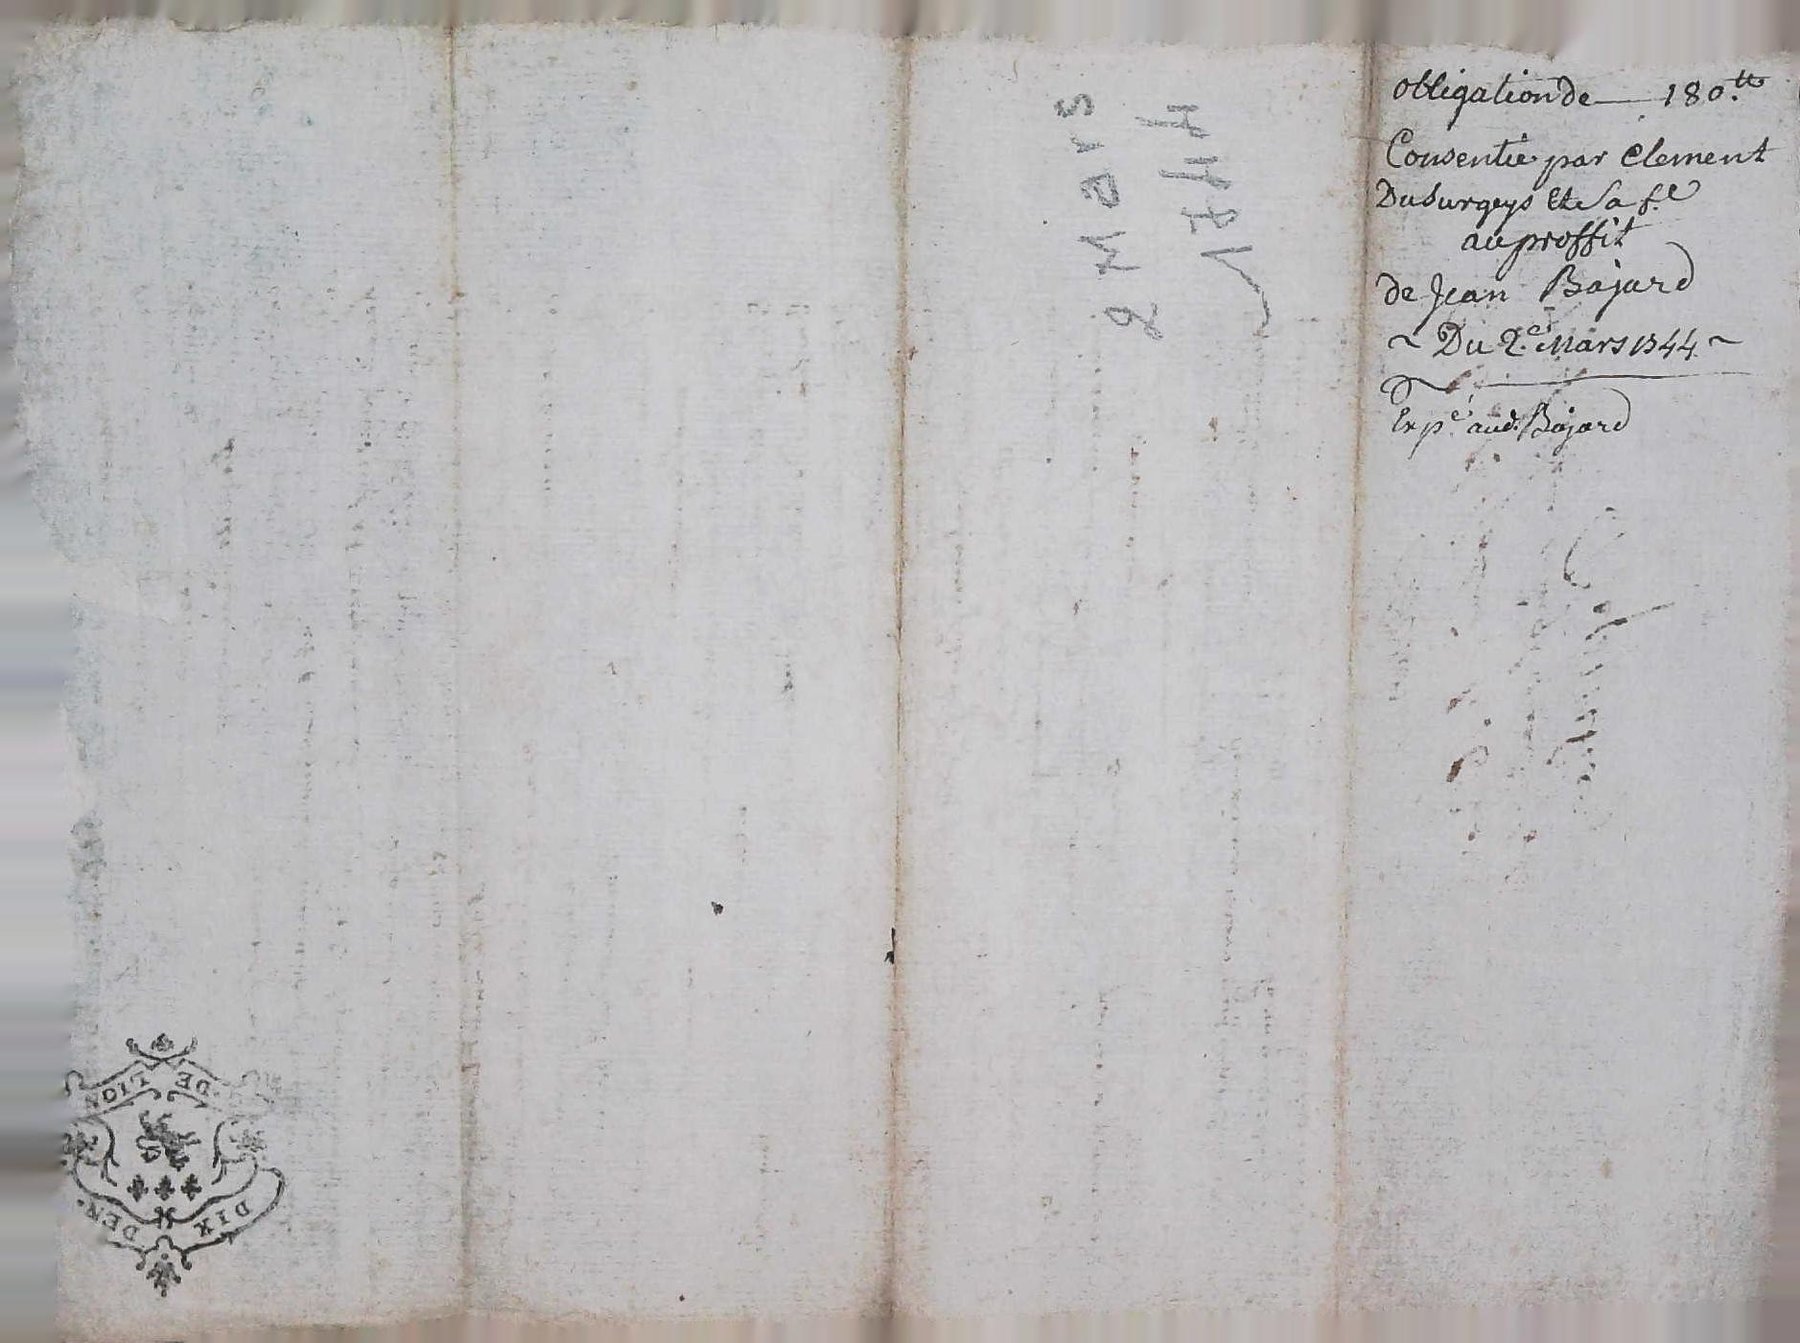 obligation de — 180.tt
Consentie par Clement
Dusurgeys et Sa f.e
au proffit
de Jean Bajard
~ Du 2.e Mars 1744 ~
Exp.é aud. Bajard
2 Mars
1744
DE LION
DIX DEN.